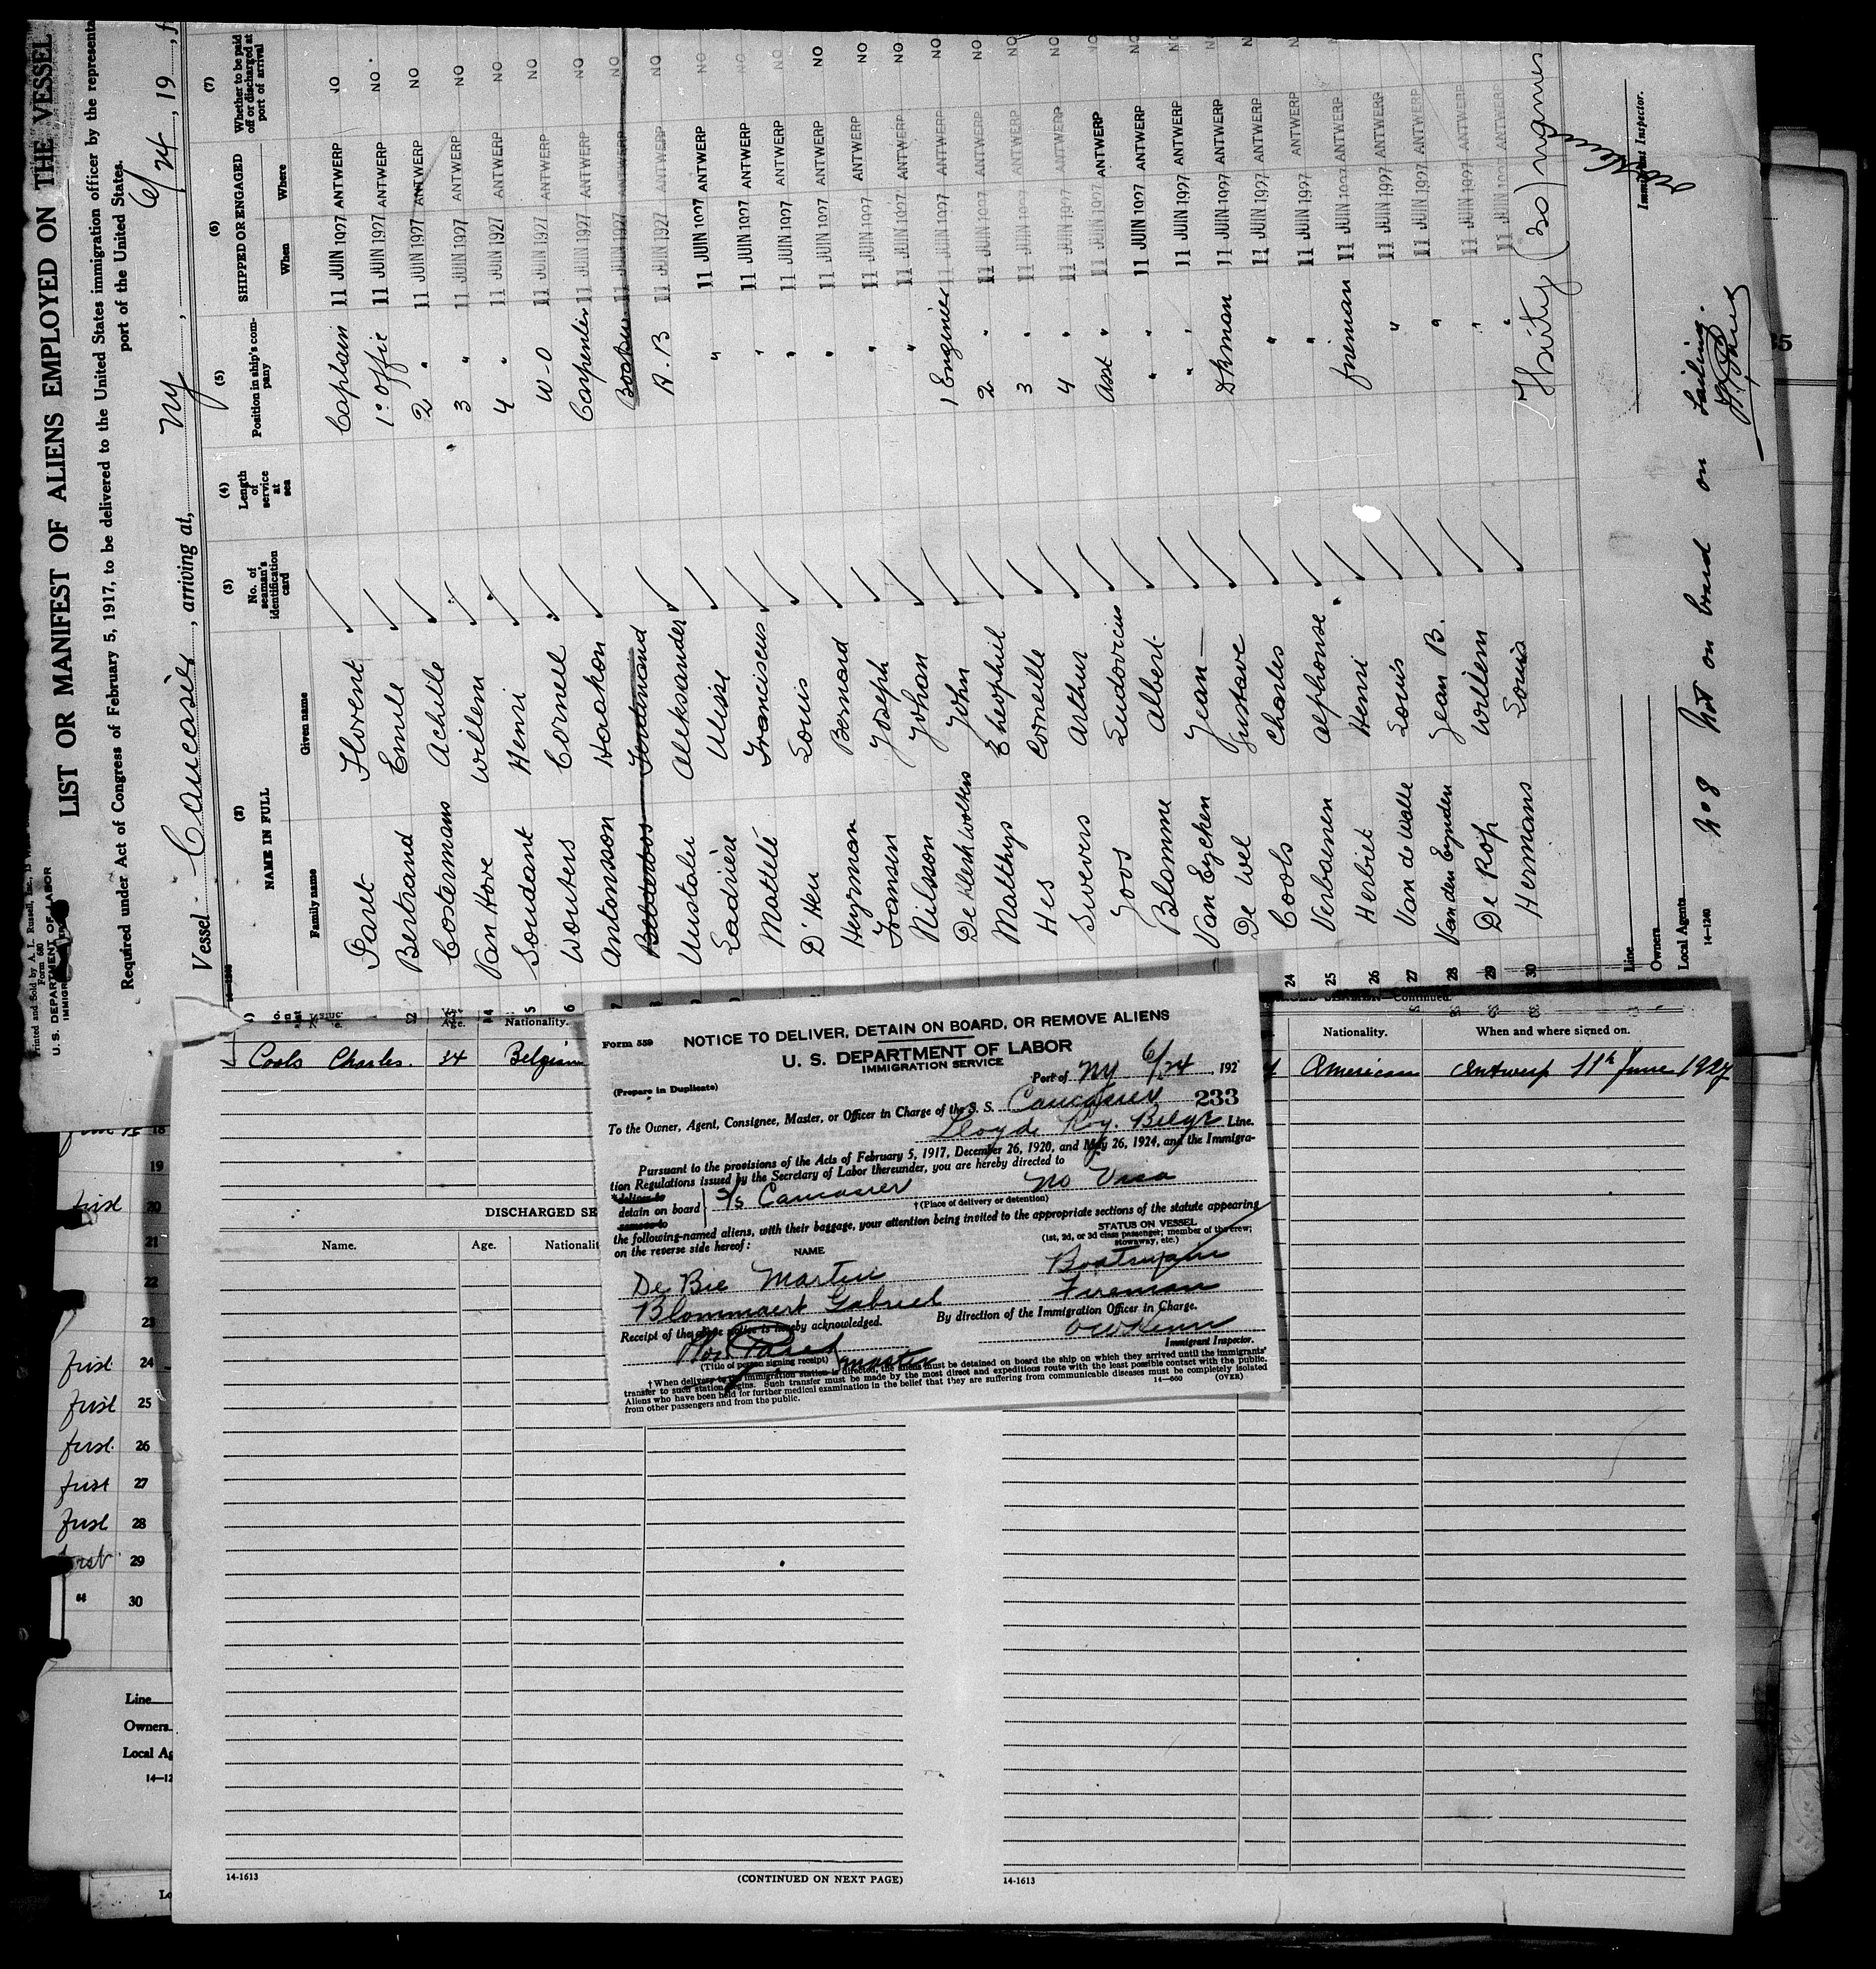 LIST OR MANIFEST OF ALIENS EMPLOYED ON THE VESSEL
Required under Act of Congress of February 5, 1917, to be delivered to the United States immigration officer by the represent
port of the United States.
Printed and Sold by A. I. Russell, Inc.,
Form 680
U. S. DEPARTMENT OF LABOR
Vessel Caucasier, arriving at, NY, 6/24, 19
(2) NAME IN FULL
(3) No. of seaman's identification card
(4) Length of service at sea
(5) Position in ship's company
(6) SHIPPED OR ENGAGED
(7) Whether to be paid off or discharged at port of arrival
Family name Given name When Where
Paret Florent Captain 11 JUIN 1927 ANTWERP NO
Bertrand Emile 1° offic 11 JUIN 1927 ANTWERP NO
Costermans Achille 2 " 11 JUIN 1927 ANTWERP NO
Van Hove Willem 3 " 11 JUIN 1927 ANTWERP NO
5 Soudant Henri 4 " 11 JUIN 1927 ANTWERP NO
6 Wouters Corneel W-O 11 JUIN 1927 ANTWERP NO
Antonsson Haakon Carpenter 11 JUIN 1927 ANTWERP NO
Ferdinand 11 JUIN 1927 ANTWERP NO
Uustalu Aleksander A.B 11 JUIN 1927 ANTWERP NO
Ladrière Ulisse " 11 JUIN 1927 ANTWERP NO
Mattelé Franciscus " 11 JUIN 1927 ANTWERP NO
D'Heu Louis " 11 JUIN 1927 ANTWERP NO
Heyrman Bernard " 11 JUIN 1927 ANTWERP NO
Fransen Joseph " 11 JUIN 1927 ANTWERP NO
Nilsson Johan " 11 JUIN 1927 ANTWERP NO
De Klerk Wolters John 1 Engineer 11 JUIN 1927 ANTWERP NO
Matthys Theophiel 2 " 11 JUIN 1927 ANTWERP NO
Hes Corneille 3 " 11 JUIN 1927 ANTWERP NO
Siwers Arthur 4 " 11 JUIN 1927 ANTWERP NO
Joos Ludovicus Asst " 11 JUIN 1927 ANTWERP NO
Blomme Albert " " 11 JUIN 1927 ANTWERP NO
Van Eycken Jean " " 11 JUIN 1927 ANTWERP
De Wel Gustave Dkman 11 JUIN 1927 ANTWERP
24 Cools Charles " 11 JUIN 1927 ANTWERP
25 Verbaenen Alphonse " 11 JUIN 1927 ANTWERP
26 Herbiet Henri fireman 11 JUIN 1927 ANTWERP
27 Van de Walle Louis " 11 JUIN 1927 ANTWERP
28 Van den Eynden Jean B. " 11 JUIN 1927 ANTWERP
29 De Rop Willem " 11 JUIN 1927 ANTWERP
30 Hermans Louis " 11 JUIN 1927 ANTWERP
Thirty (30) names
Line
Owners
Local Agents
14-1240
Immigrant Inspector.
No 8 Not on board on sailing.
Nationality.
Cools Charles. 34 Belgian
DISCHARGED SE
Name. Age. Nationalit
Continued.
Nationality. When and where signed on.
American Antwerp 11th June 1927
Form 559
NOTICE TO DELIVER, DETAIN ON BOARD, OR REMOVE ALIENS
U. S. DEPARTMENT OF LABOR
IMMIGRATION SERVICE
(Prepare in Duplicate)
Port of NY 6/24, 192
To the Owner, Agent, Consignee, Master, or Officer in Charge of the S. S. Caucasier 233
Lloyde Roy. Belge Line.
Pursuant to the provisions of the Acts of February 5, 1917, December 26, 1920, and May 26, 1924, and the Immigra-
tion Regulations issued by the Secretary of Labor thereunder, you are hereby directed to
*deliver to
detain on board S/S Caucasier no Visa
remove to
†(Place of delivery or detention)
the following-named aliens, with their baggage, your attention being invited to the appropriate sections of the statute appearing
on the reverse side hereof:
NAME
STATUS ON VESSEL
(1st, 2d, or 3d class passenger; member of the crew;
stowaway, etc.)
De Bie Martin Boatswain
Blommaert Gabriel Fireman
Receipt of the above notice is hereby acknowledged.
By direction of the Immigration Officer in Charge.
Immigrant Inspector.
Paret
(Title of person signing receipt) master
†When delivery to the immigration station is directed, the aliens must be detained on board the ship on which they arrived until the immigrants'
transfer to such station begins. Such transfer must be made by the most direct and expeditious route with the least possible contact with the public.
Aliens who have been held for further medical examination in the belief that they are suffering from communicable diseases must be completely isolated
from other passengers and from the public.
14—600 (OVER)
18
19
first 20
21
22
23
first 24
first 25
first 26
first 27
first 28
first 29
" 30
Line
Owners
Local Ag
14—12
14-1613
(CONTINUED ON NEXT PAGE)
14-1613